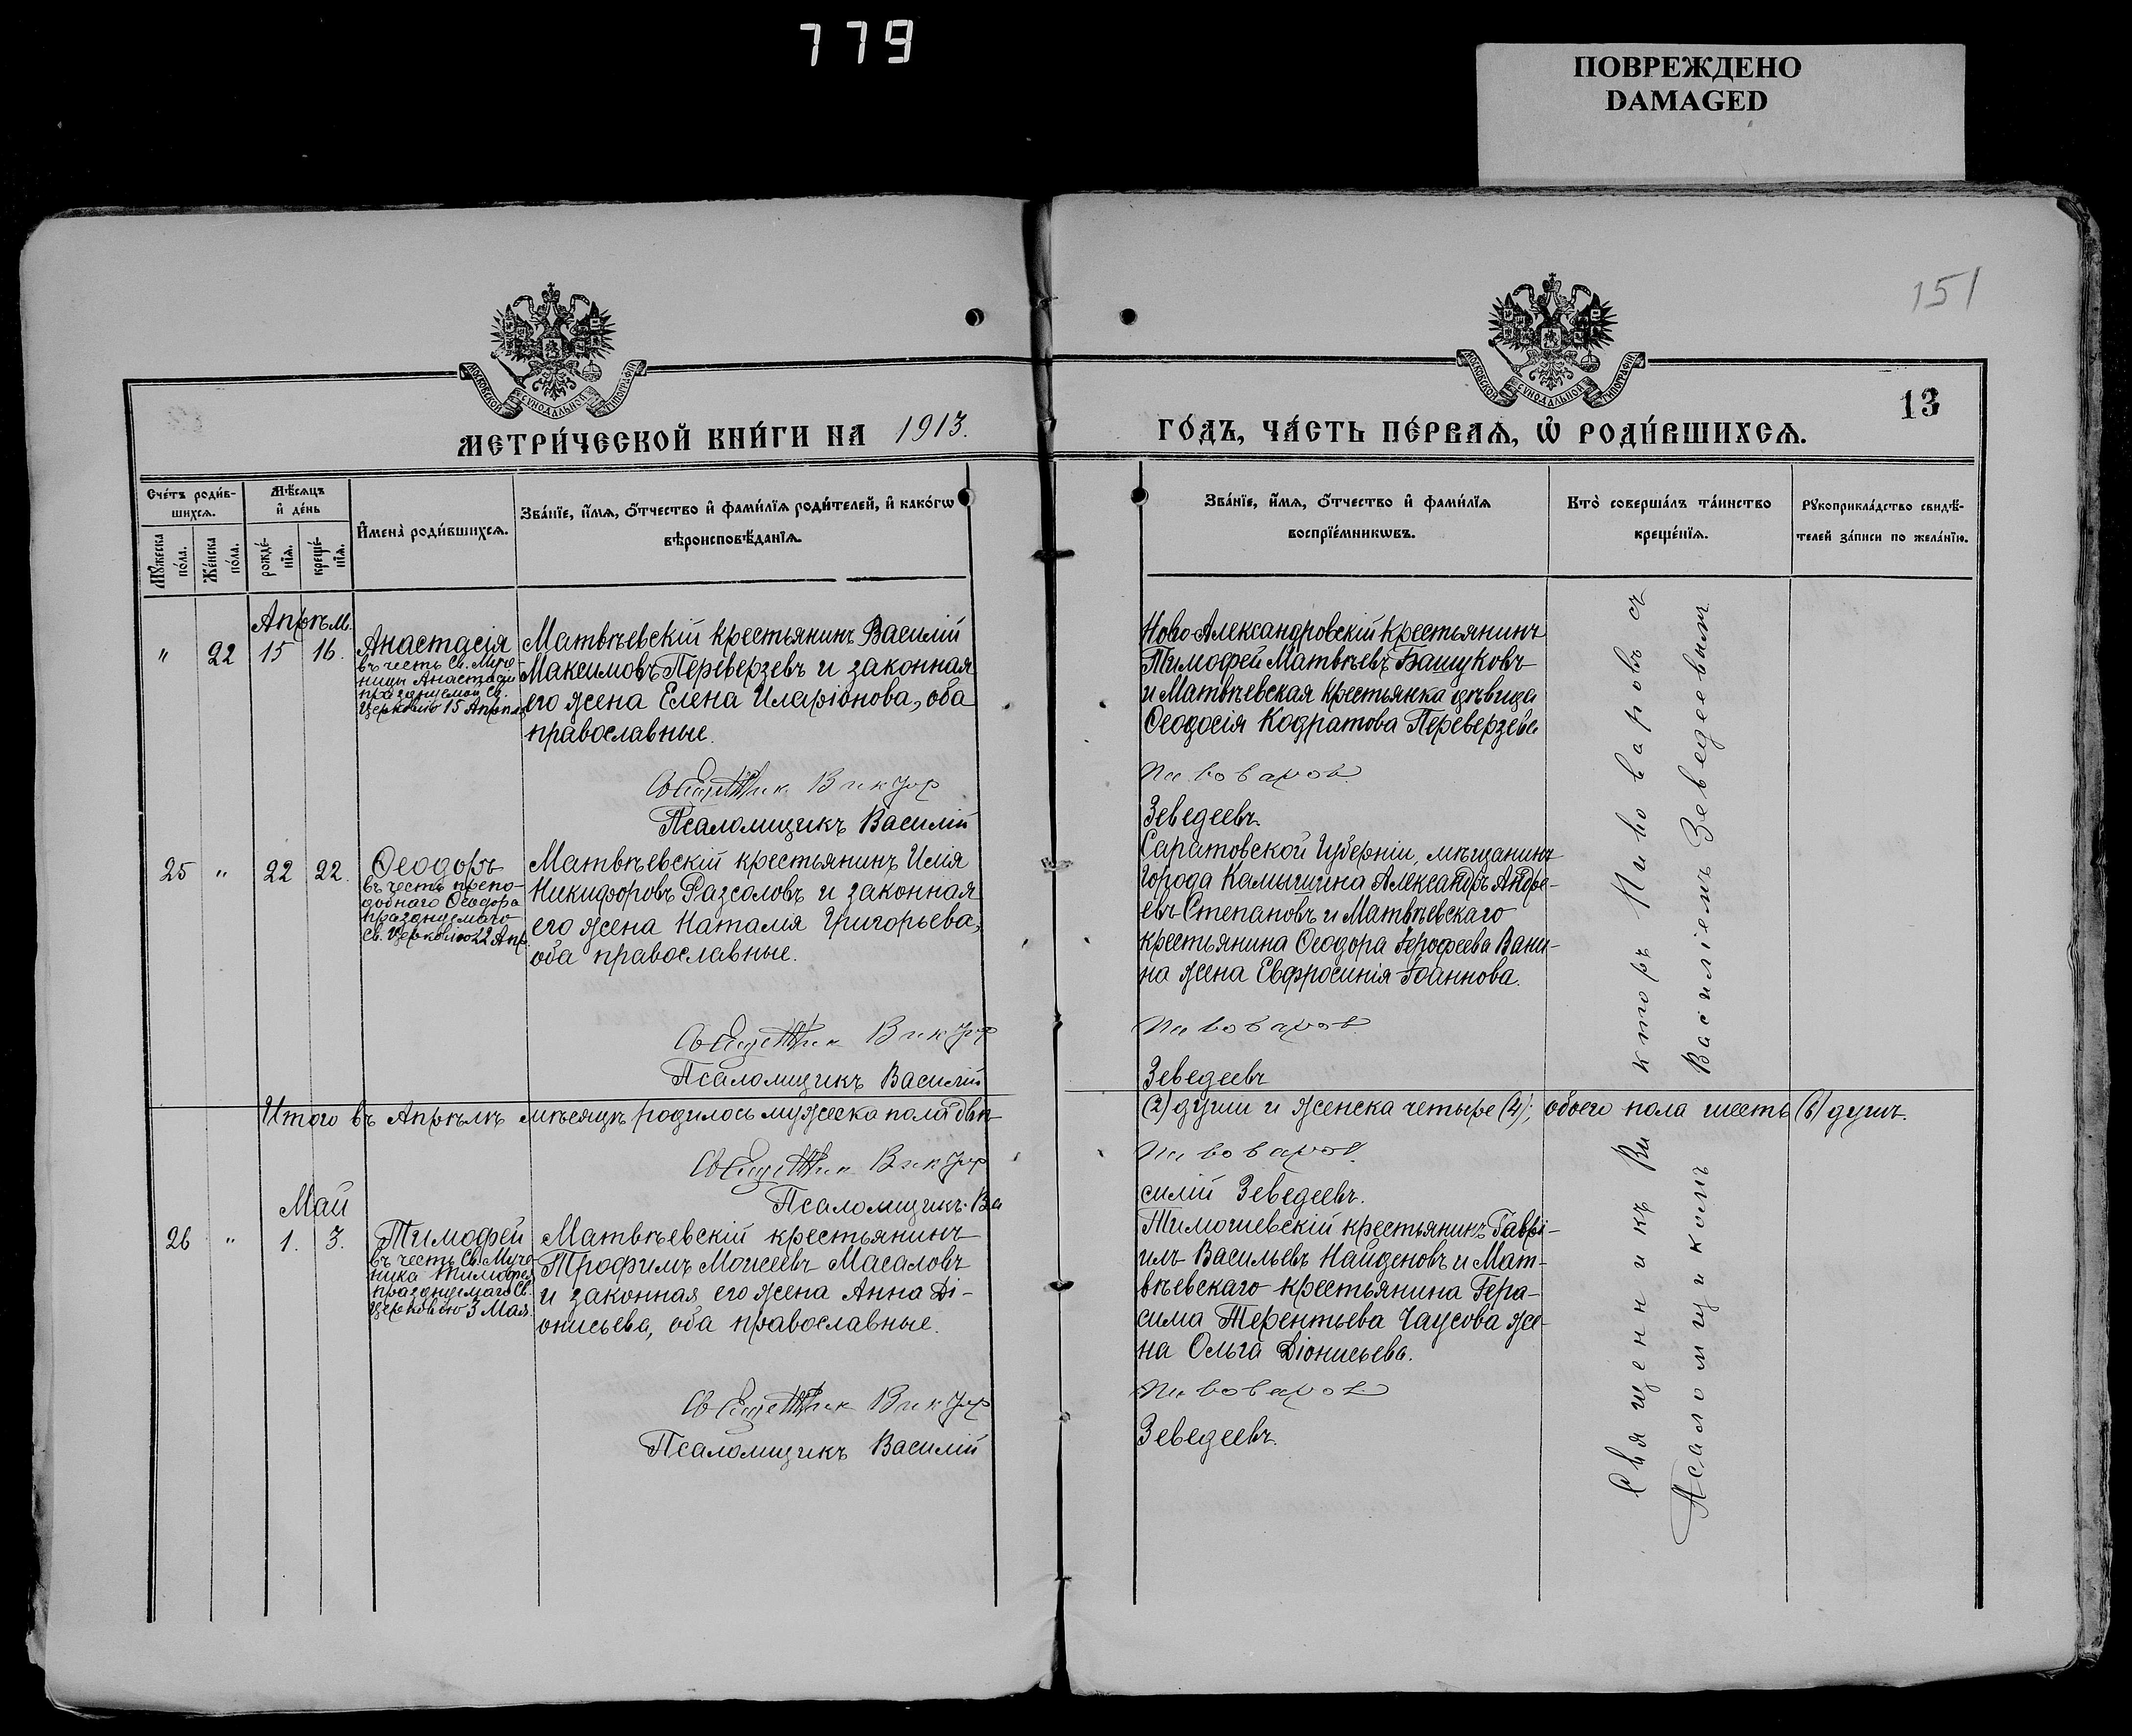 779
ПОВРЕЖДЕНО
DAMAGED
151
МОСКОВСКОЙ СѴНОДАЛЬНОЙ ТИПОГРАФІИ
МОСКОВСКОЙ СѴНОДАЛЬНОЙ ТИПОГРАФІИ
13
МЕТРИ́ЧЕСКОЙ КНИ́ГИ НА 1913.
ГО́ДЪ, ЧА́СТЬ ПЕ́РВАѦ, Ѡ҆ РОДИ́ВШИХСѦ.
Сче́тъ роди́в-
шихсѧ.
Мꙋ́жеска по́ла.
Же́нска по́ла.
Мѣ́сѧцъ
и҆ де́нь
рожде́-нїѧ.
креще́-нїѧ.
И҆мена̀ роди́вшихсѧ.
Зва́нїе, и҆́мѧ, ѻ҆́тчество и҆ фами́лїѧ роди́телей, и҆ како́гѡ
вѣроисповѣ́данїѧ.
Зва́нїе, и҆́мѧ, ѻ҆́тчество и҆ фами́лїѧ
воспрїе́мникѡвъ.
Кто̀ соверша́лъ та́инство
креще́нїѧ.
Рꙋкоприкла́дство свидѣ́-
телей за́писи по жела́нїю.
Апрѣль.
" 22 15 16.
Анастасія
въ честь Св. Муче-
ницы Анастасіи
празднуемой Св.
Церковію 15 Апрѣля
Матвѣевскій крестьянинъ Василій
Максимовъ Переверзевъ и законная
его жена Елена Иларіонова, оба
православные.
Священник Виктор
Псаломщикъ Василій
Ново-Александровскій крестьянинъ
Тимофей Матвѣевъ Башуковъ
и Матвѣевская крестьянка дѣвица
Ѳеодосія Кодратова Переверзева
Пивоваров.
Зеведеевъ.
25 " 22 22.
Ѳеодоръ
въ честь препо-
добнаго Ѳеодора
празднуемаго
Св. Церковію 22 Апр.
Матвѣевскій крестьянинъ Илія
Никифоровъ Разсаловъ и законная
его жена Наталія Григорьева,
оба православные.
Священник Виктор
Псаломщикъ Василій
Саратовской Губерніи, мѣщанинъ
Города Камышина Александръ Андре-
евъ Степановъ и Матвѣевскаго
крестьянина Ѳеодора Іерофеева Вани-
на жена Евфросинія Іоаннова.
Пивоваров.
Зеведеевъ
Итого въ Апрѣлѣ мѣсяцѣ родилось мужеска пола двѣ
(2) души и женска четыре (4); обоего пола шесть (6) душъ.
Священник Виктор
Пивоваров.
Псаломщикъ Ва
силій Зеведеевъ.
Май
26 " 1. 3.
Тимофей
въ честь Св. Муче
ника Тимофея
празднуемаго Св.
Церковію 3 Мая.
Матвѣевскій крестьянинъ
Трофимъ Моисеевъ Масаловъ
и законная его жена Анна Ді-
онисьева, оба православные.
Священник Виктор
Псаломщикъ Василій
Тимошевскій крестьянинъ Гаврі-
илъ Васильевъ Найденовъ и Мат-
вѣевскаго крестьянина Гера-
сима Терентьева Чаусова же-
на Ольга Діонисьева.
Пивоваров.
Зеведеевъ.
Священникъ Викторъ Пивоваровъ съ
Псаломщикомъ Василіемъ Зеведеевымъ